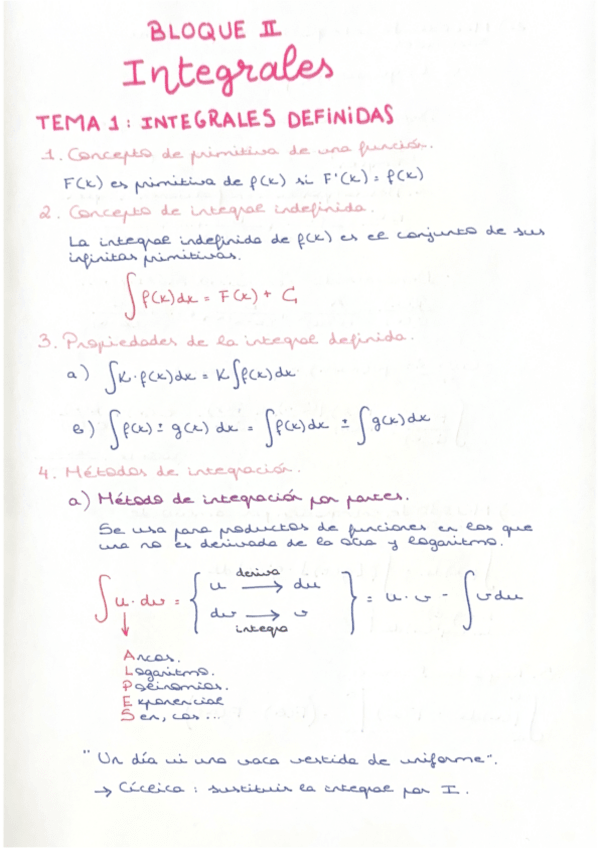 BLOQUE II
Integrales
TEMA 1: INTEGRALES DEFINIDAS
1. Concepto de primitiva de una función.
F(x) es primitiva de f(x) si F'(x) = f(x)
2. Concepto de integral indefinida.
La integral indefinida de f(x) es el conjunto de sus
infinitas primitivas.
∫ f(x)dx = F(x) + C
3. Propiedades de la integral definida.
a) ∫K·f(x)dx = K∫f(x)dx
b) ∫f(x) ± g(x) dx = ∫f(x)dx ± ∫g(x)dx
4. Métodos de integración.
a) Método de integración por partes.
Se usa para productos de funciones en los que
una no es derivada de la otra y logaritmo.
∫u·dv = { u deriva→ du
dv →integra v } = u·v - ∫vdu
↓
Arcos.
Logaritmo.
Polinomios.
Exponencial
Sen, cos...
"Un día vi una vaca vestida de uniforme".
→ Cíclica: sustituir la integral por I.